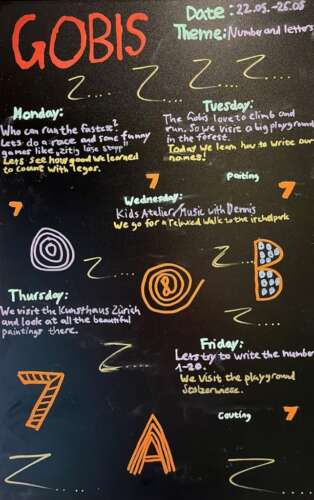 GOBIS
Date: 22.05.-26.05
Theme: Number and letters
Z....
Z....
Z....
Z....
Monday:
Who can run the fastest?
Lets do a race and some funny
games like „Zitig läse stopp"
Lets see how good we learned
to count with legos.
Tuesday:
The Gobis love to climb and
run. So we visit a big playground
in the forest.
Today we learn how to write our
names!
7
7
Paiting
Wednesday:
Kids Atelier/Music with Dennis
We go for a relaxed walk to the irchelpark
Z....
8
Z....
B
Z....
Thursday:
We visit the Kunsthaus Zürich
and look at all the beautiful
paintings there.
Z....
Friday:
Lets try to write the number
1-20.
We visit the playground
7
A
Couting
7
Z....
Z....